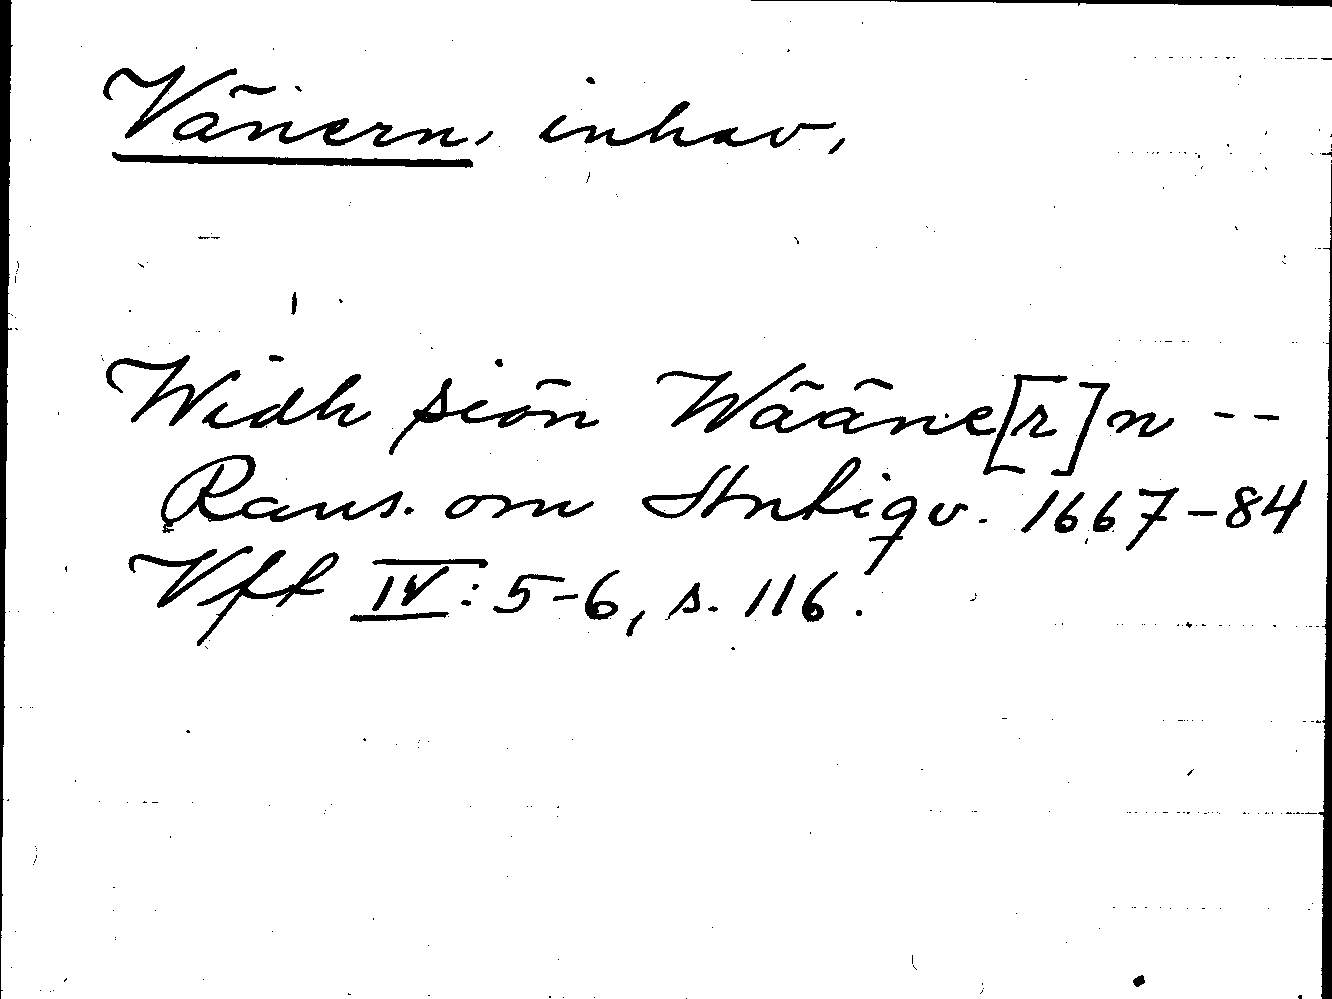 Vänern, inhav,
Widh siön Wääne[r]n --
Rans. om Antiqv. 1667-84
Vft IV: 5-6, s. 116.